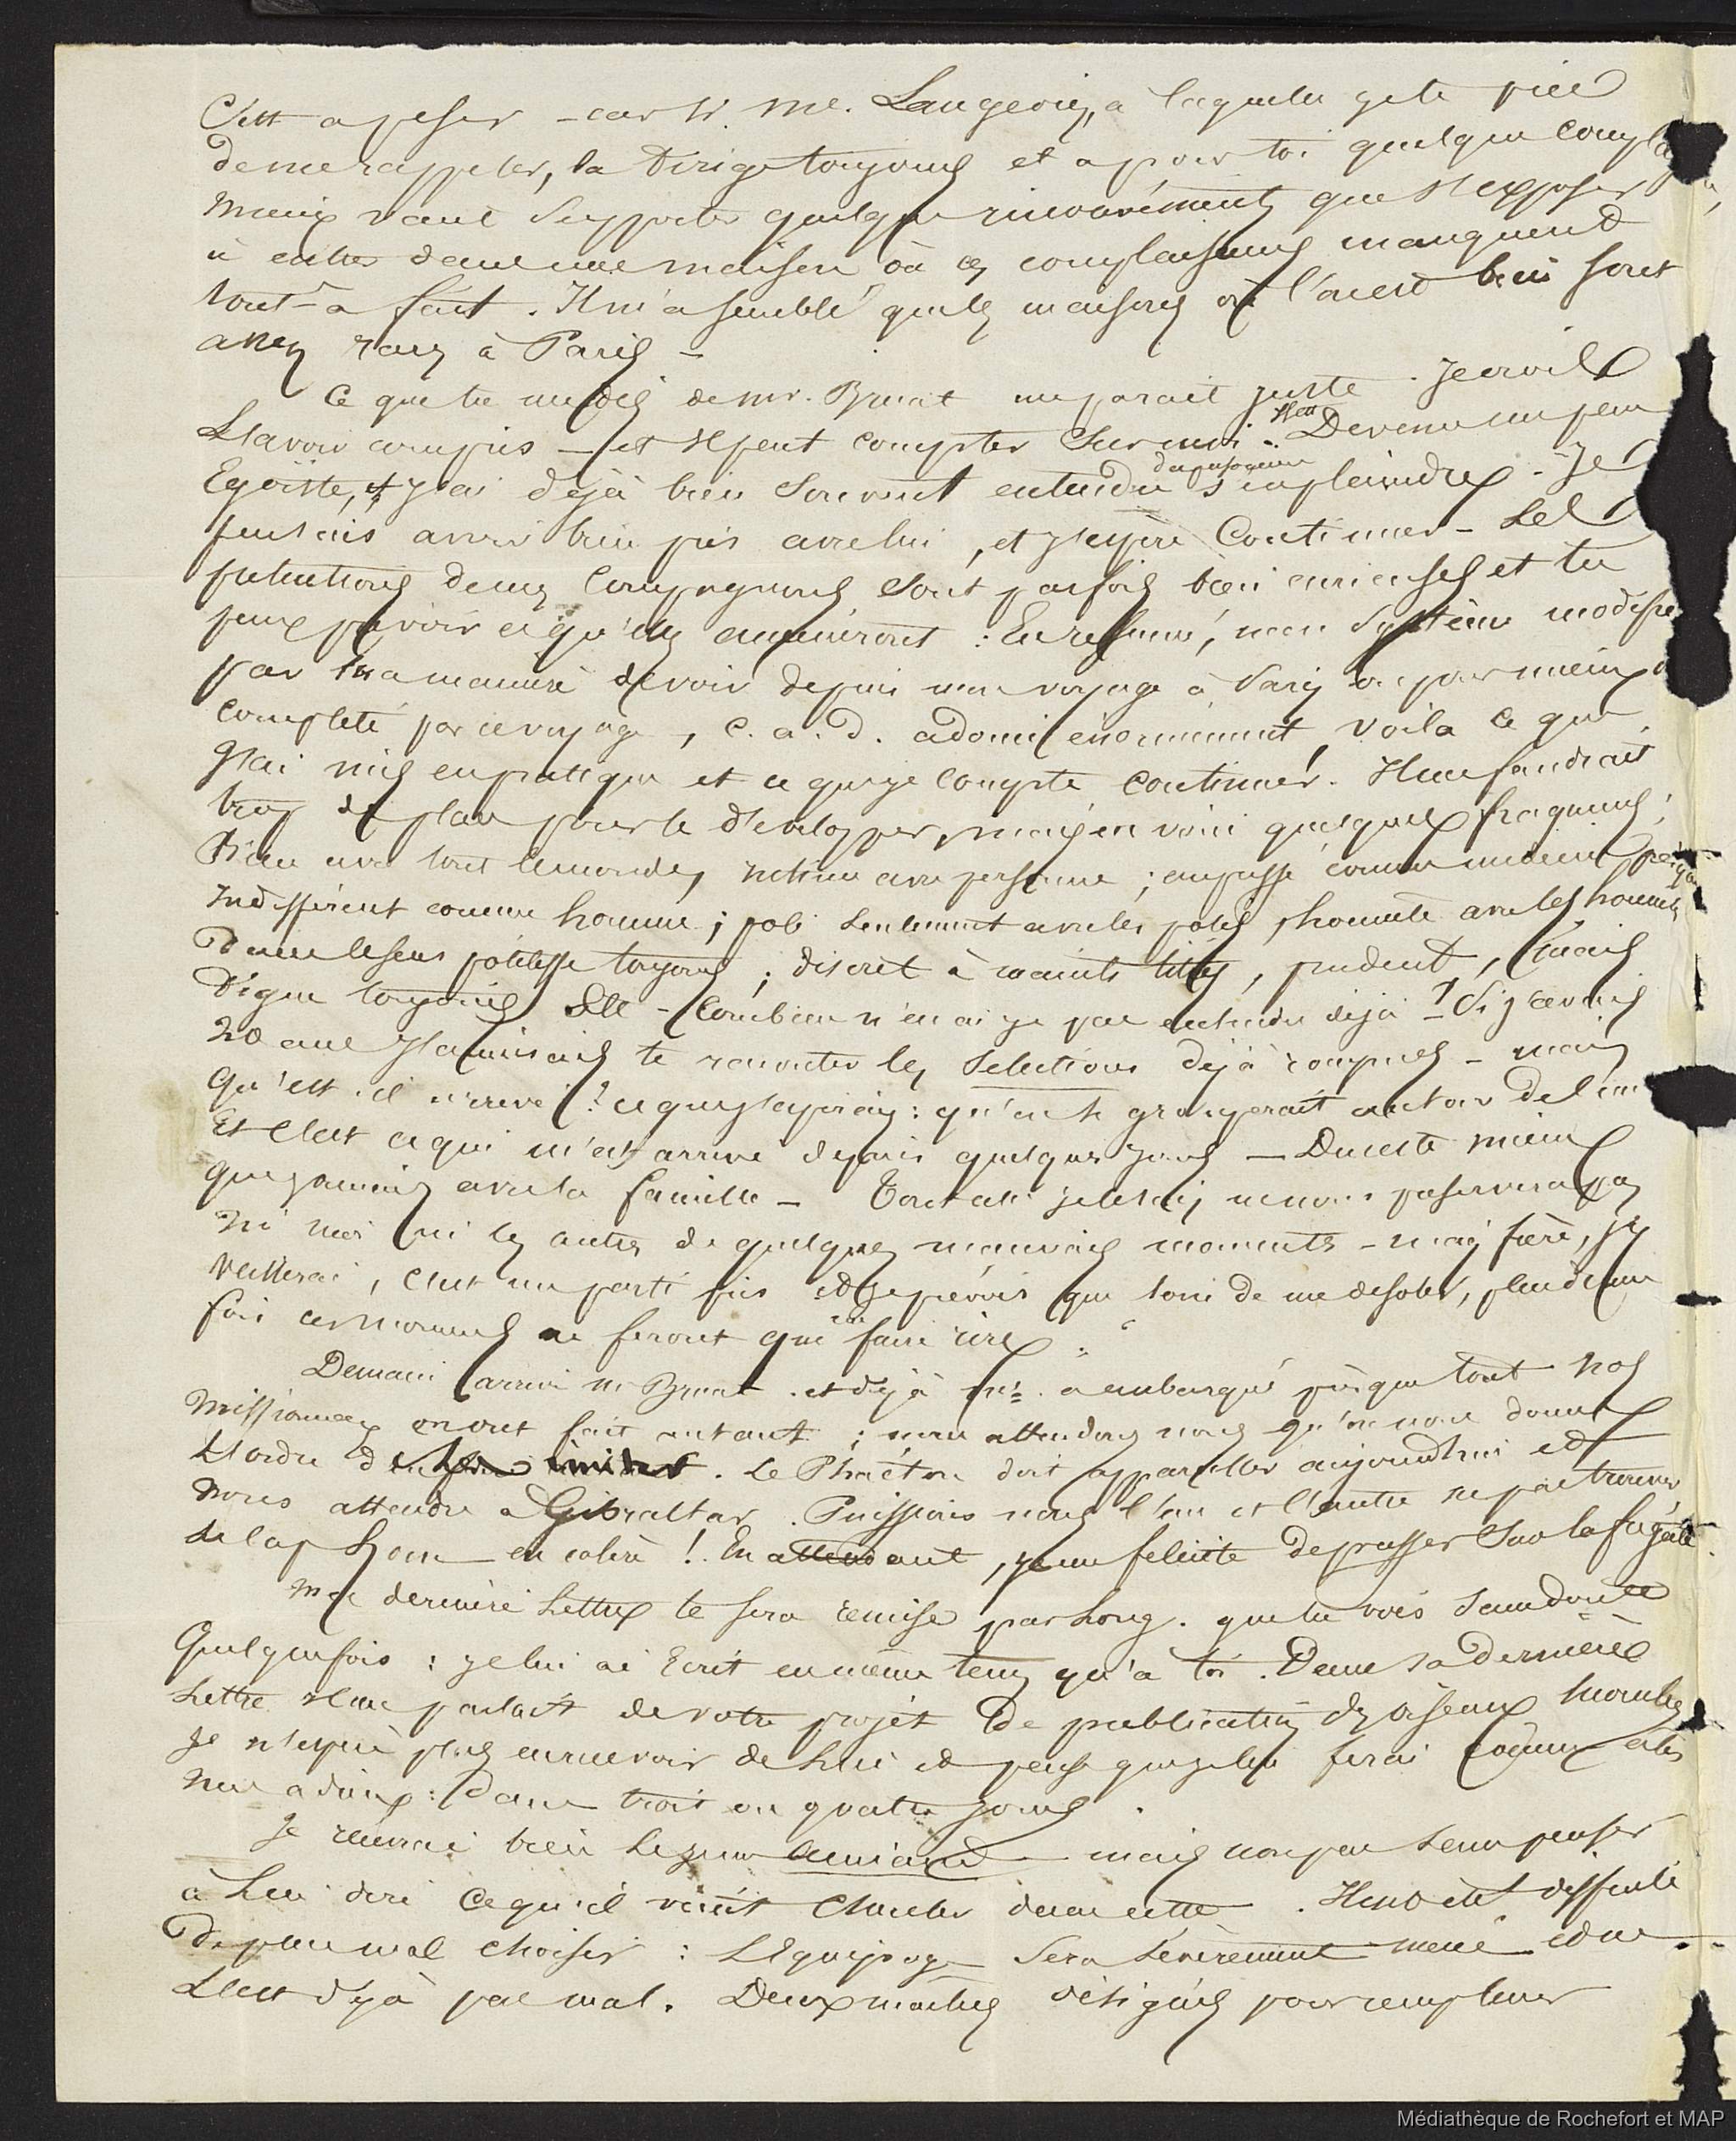 C'est a peser - car si Me. Laugerie, à laquelle je te prie
de me rappeler, la dirige toujours et a pour toi quelque compl
mieux vaut supporter quelque que s'exposer
à entrer dans une maison où ces complaisances manquent
tout-à fait. Il m'a semblé que les maisons où l'on est bien sont
assez rares à Paris -
Ce que tu me dis de mr. Bruat me parait juste. Je crois
l'avoir compris - et il peut compter sur moi. Il est Devenu un peu
Egoïste, et j'ai déjà bien souvent entendu s'en plaindre. - Je
suis bien pris avec lui, et j'espère Continuer - Les
prétentions de mes compagnons sont parfois bien curieuses et tu
peux prévoir ce qu'elles amèneront : En résumé, mon système modifié
par ma manière de voir depuis mon voyage à Paris ou pour mieux d
completé par ce voyage, c. a. d. adouci énormement, voila ce que
j'ai mis en pratique et ce que je compte continuer. Il me faudrait
trop de place pour le développer, mais en voici quelques fragments :
Bien avec tout le monde, intime avec personne ; empressé comme médecin
Indifférent comme homme ; poli seulement avec les polis, honnête avec les honnetes
Dans le sens politesse toujours ; discret à maints titres, prudent, mais
Digne toujours &c - Combien n'en ai-je pas entendu déjà ! Si j'avais
20 ans j'aimerais te raconter les relations déjà rompues - mais
qu'est-il arrivé ? ce que j'espérais : qu'on se grouperait autour de l'un
Et c'est ce qui m'est arrivé depuis quelques jours - Du reste mieux
que jamais avec la famille - Tout cela je le sais, ne nous préservera pas
ni moi ni les autres de quelques mauvais moments - mais frère, j'y
veillerai, c'est un parti pris et je prévois que loin de me désoler, plus d'une
fois ces moments ne feront que me faire rire.
Demain arrive mr Bruat. et déjà me. a embarqué presque tout nos
Missionnaires en ont fait autant ; nous attendons nous qu'on nous donne
l'ordre d'en . Le Phaéton doit appareiller aujourdhui et
nous attendre à Gibraltar. Puissions nous l'un et l'autre ne pas trouver
le cap Horn en colère ! En attendant, je me félicite de passer sur la frégate
Ma dernière lettre te sera remise par Long. que tu vois sans doute
Quelquefois : je lui ai écrit en même tems qu'à toi. Dans sa dernière
lettre il me parlait de votre projet de publication des oiseaux mouches
Je n'espère plus en recevoir de lui et pense que je lui ferai comme à toi
mes adieux : dans trois ou quatre jours.
Je reverrai bien le jeune Amiand - mais non pas sans penser
à lui dire ce qu'il vient chercher dans cette . Il est difficile
de plus mal choisir : L'Equipage sera sévèrement mené et ne
l'est déjà pas mal. Deux maitres désignés pour remplacer
Médiathèque de Rochefort et MAP